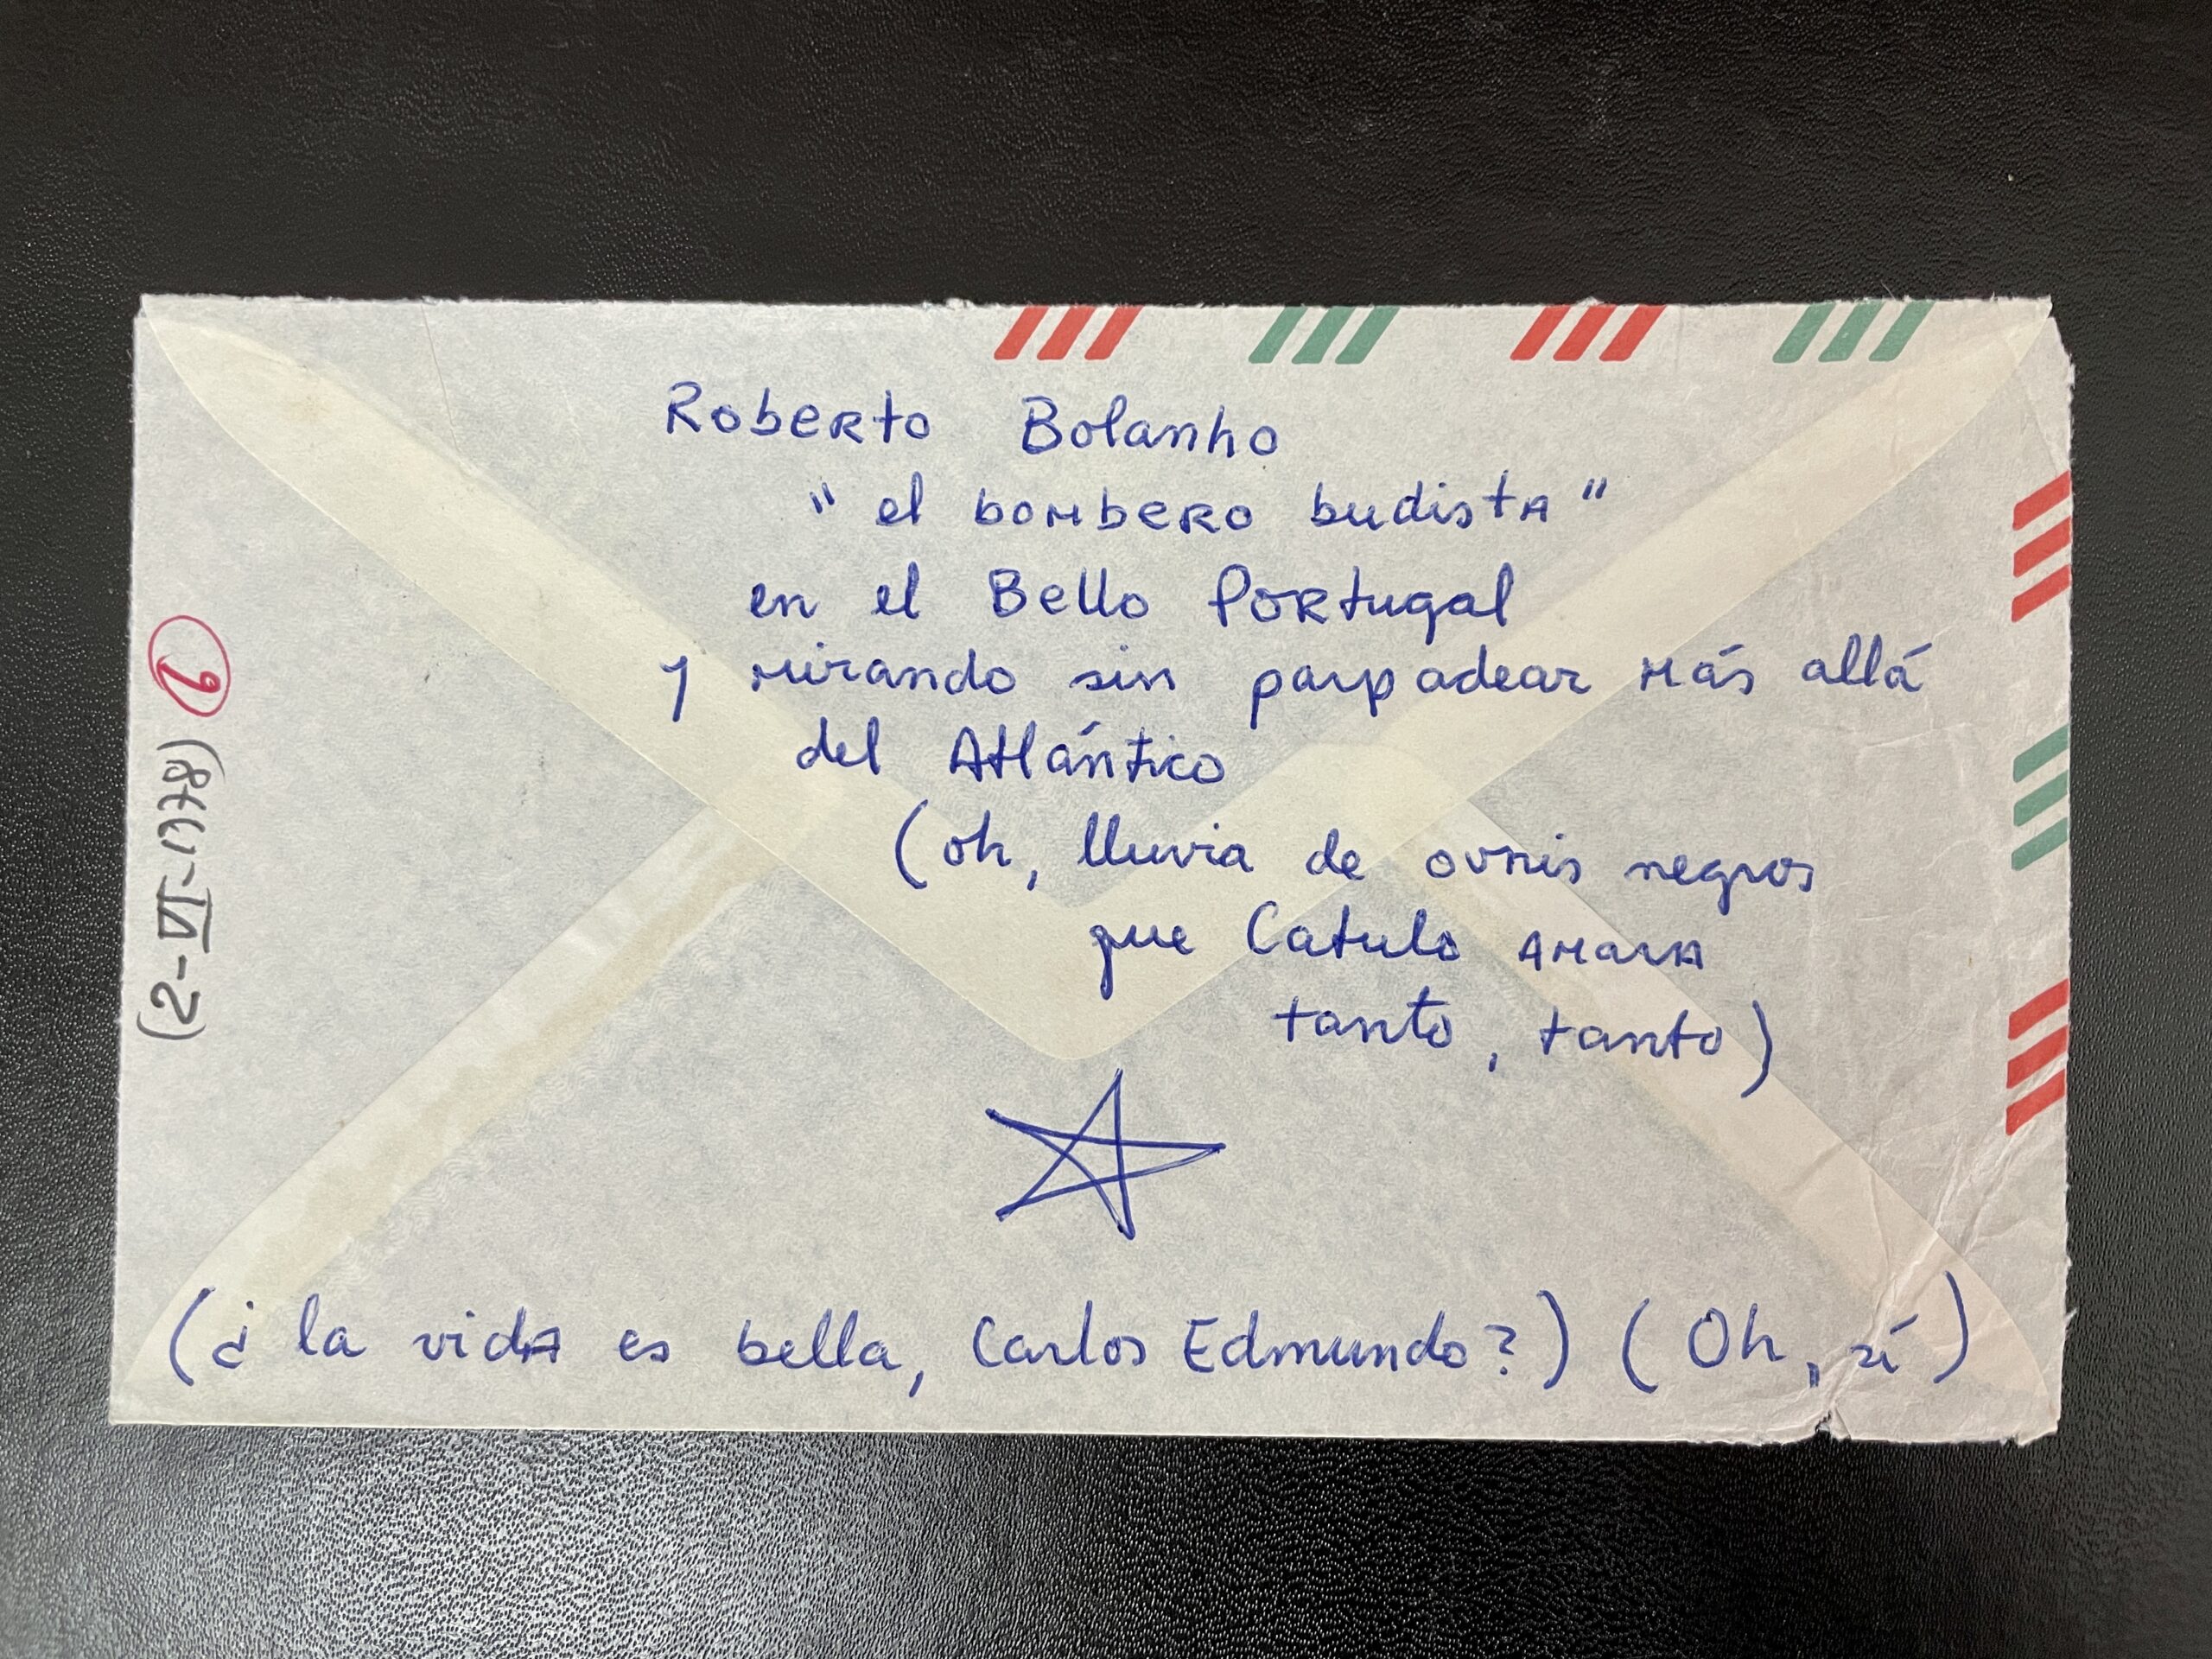 Roberto Bolanho
" el bombero budista "
en el Bello Portugal
y mirando sin parpadear más allá
del Atlántico
(oh, lluvia de ovnis negros
que Catulo amara
tanto, tanto)
(¿ la vida es bella, Carlos Edmundo?) (Oh, sí)
(2-VI-1978)
6